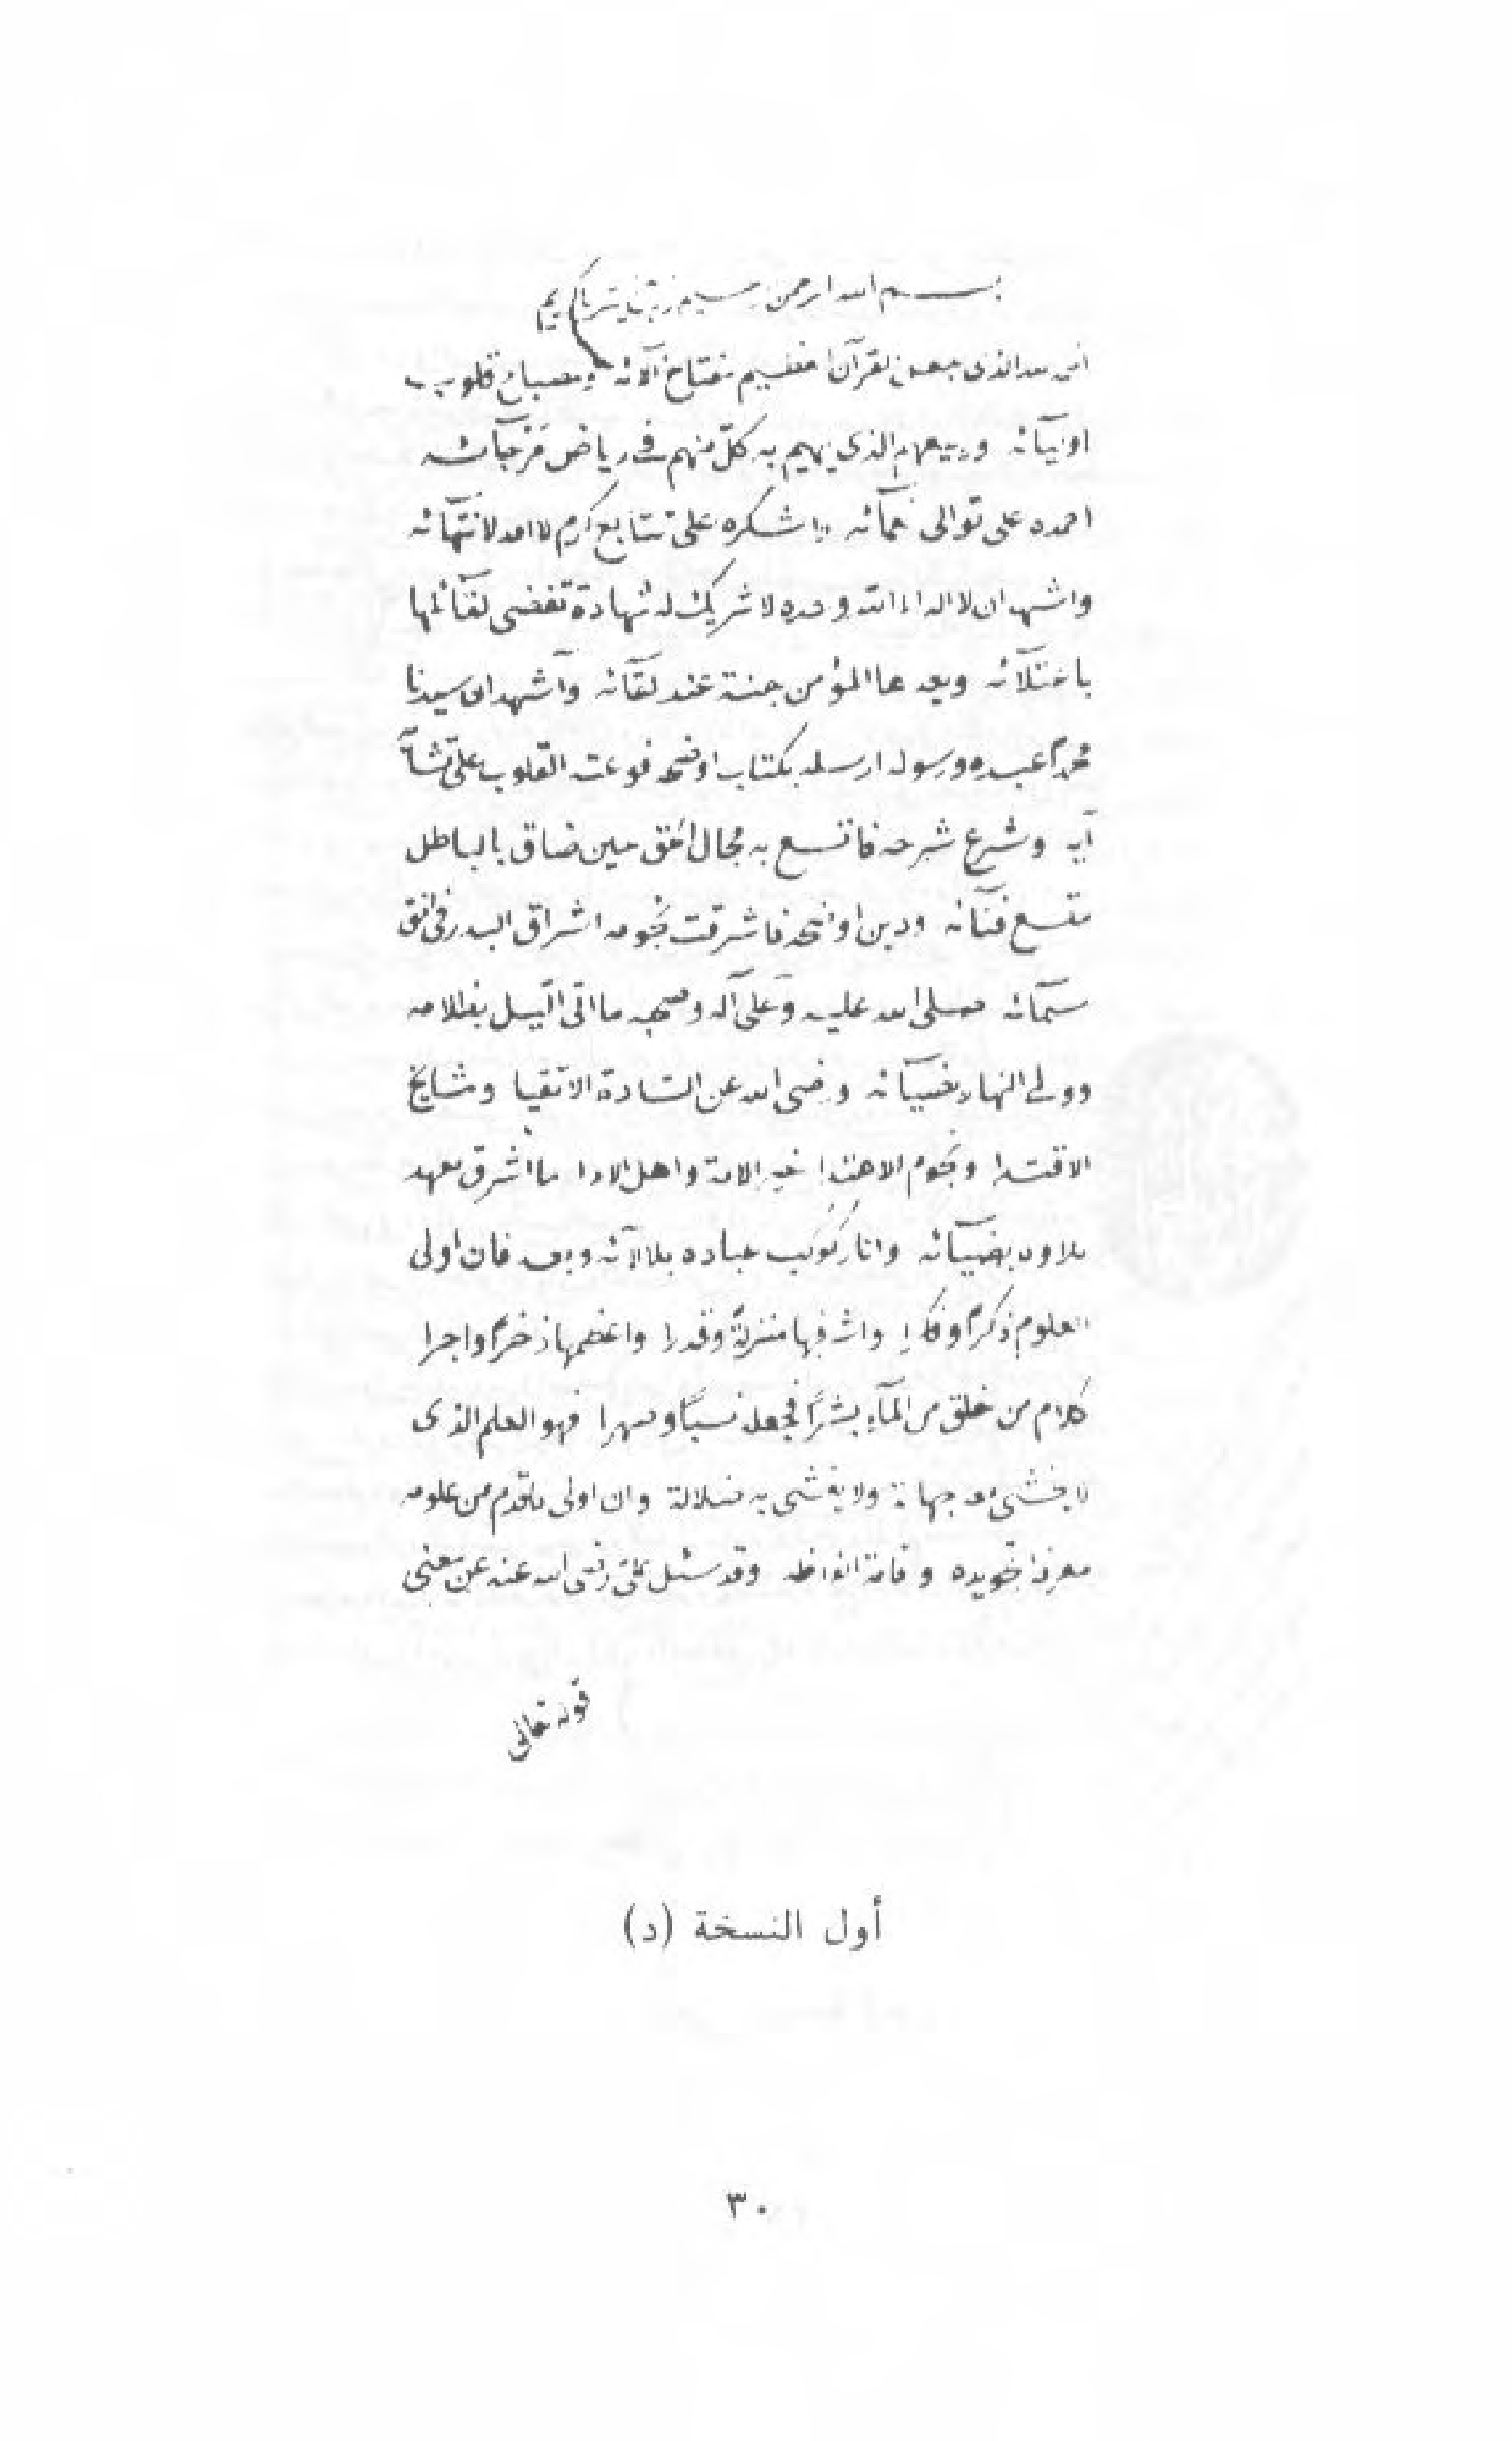 بسم الله الرحمن الرحيم رب يسر يا كريم
الحمد لله الذى جعل القرآن العظيم مفتاح آلائه ومصباح قلوب
اوليآئه وربيعهم الذى يهيم به كلّ منهم فى رياض
احمده على توالى نعمآئه واشكره على تتابع كرم لا امد لانتهآئه
واشهد ان لا اله الا الله وحده لا شريك له شهادة تفضى لقآئلها
وبعد عا المؤمن جنة عند لقآئه وآشهد ان سيدنا
محمدًا عبده ورسوله ارسله بكتاب اوضحه فوعته القلوب على
آيه وشرع شرحه فاتسع به مجال الحق حين ضاق بالباطل
متسع فنآئه ودين اوضحه فاشرقت نجومه اشراق البدر فى افق
سمآئه صلى الله عليه وعلى آله وصحبه ما اتى الليل بظلامه
وولى النهار بضيآئه ورضى الله عن السّادة الاتقيا ومشايخ
الاقتدا ونجوم الاهتدا خير الامة واهل الادا ما اشرق معهد
بلاوه بضيآئه وانار كوكب عباده بلألآئه وبعد فان اولى
العلوم ذكرًا وفكرا واشرفها منزلةً وقدرا واعظمها ذخرًا واجرا
كلام من خلق من المآء بشرًا فجعله نسبًا وصهرا فهو العلم الذى
لا يخشى معه جهالة ولا يغشى به ضلالة وان اولى ما قدم من علومه
معرفة تجويده واقامة الفاظه وقد سئل علىّ رضى الله عنه عن معنى
قوله تعالى
أول النسخة (د)
٣٠